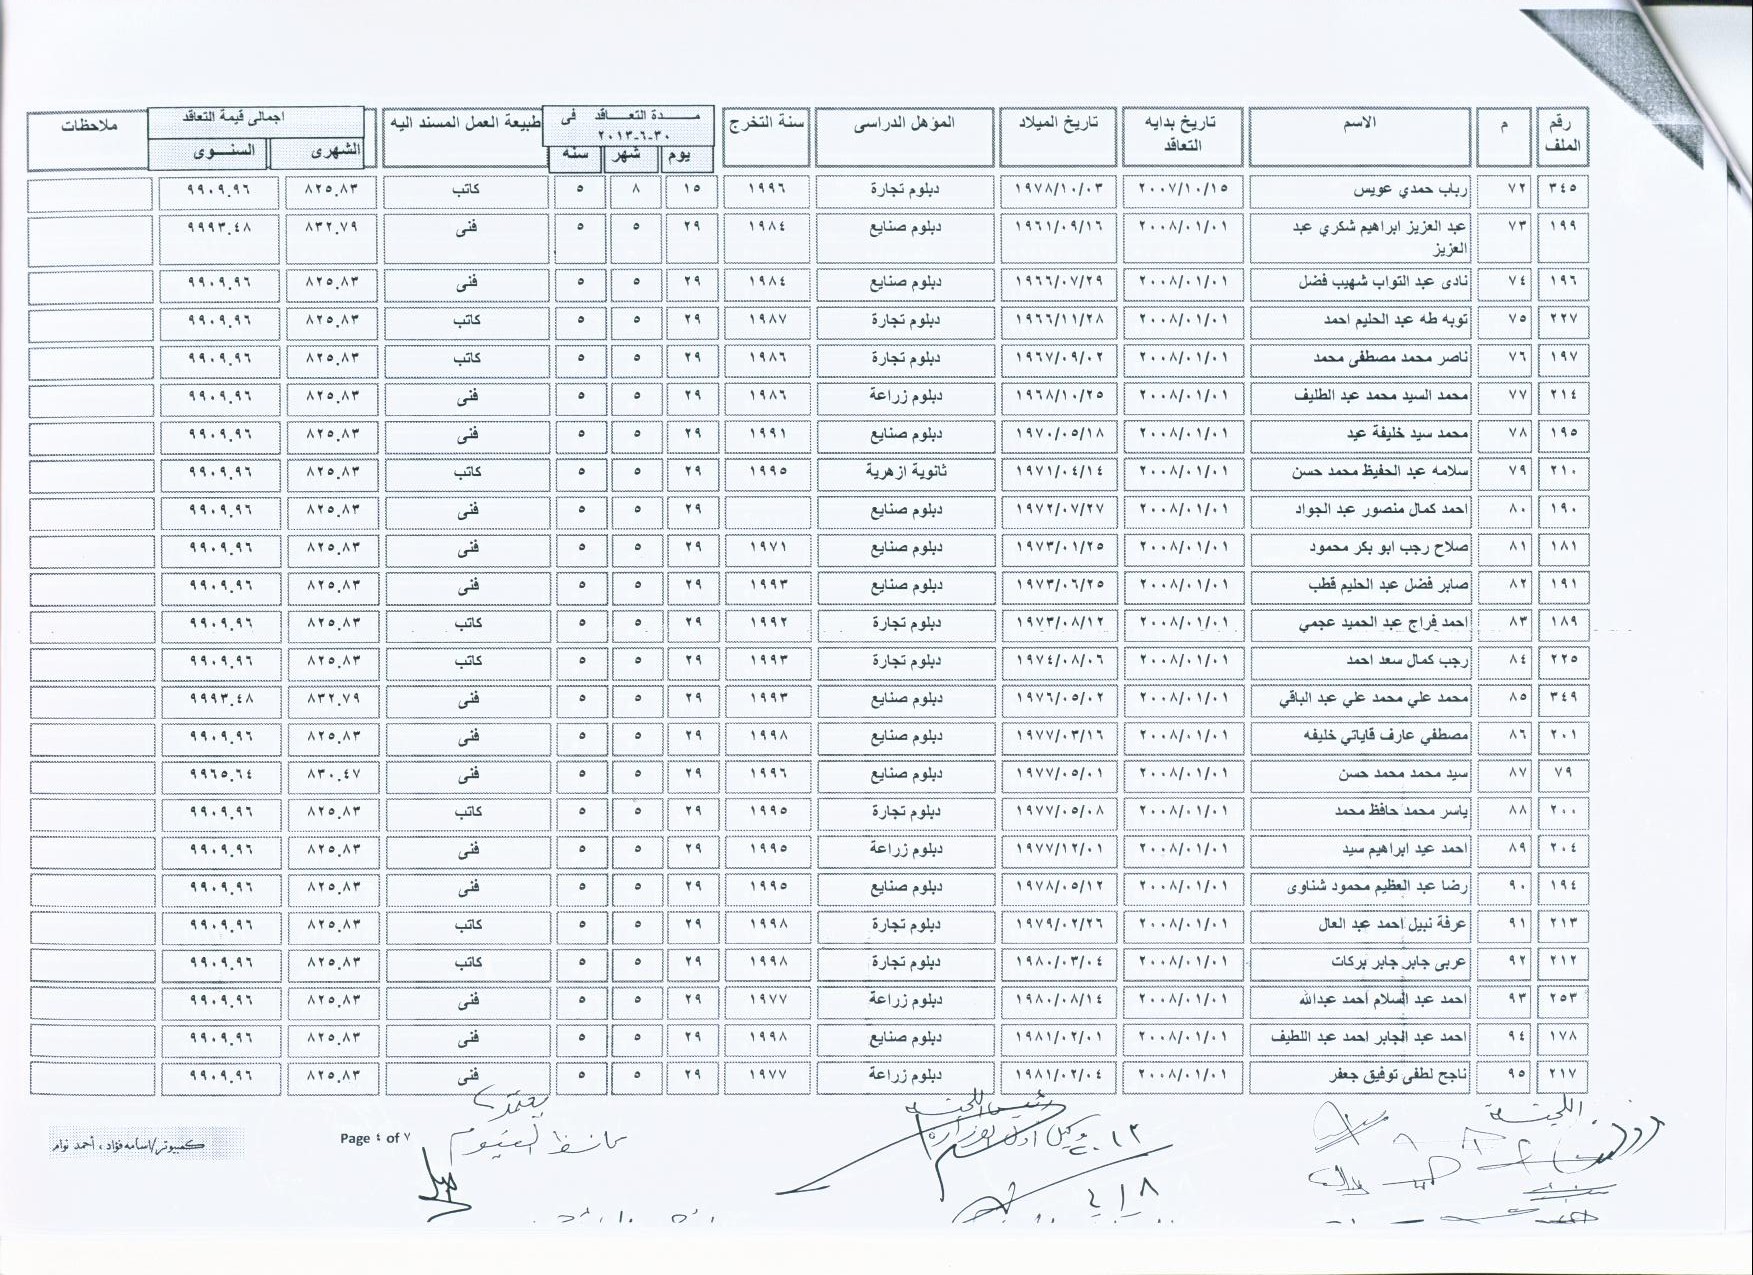 رقم الملف | م | الاسم | تاريخ بدايه التعاقد | تاريخ الميلاد | المؤهل الدراسى | سنة التخرج | مـــدة التعـــاقد فى ٣٠-٦-٢٠١٣ | طبيعة العمل المسند اليه | اجمالى قيمة التعاقد | ملاحظات
يوم | شهر | سنه | الشهرى | السنـــوى
٣٤٥ | ٧٢ | رباب حمدي عويس | ٢٠٠٧/١٠/١٥ | ١٩٧٨/١٠/٠٣ | دبلوم تجارة | ١٩٩٦ | ١٥ | ٨ | ٥ | كاتب | ٨٢٥.٨٣ | ٩٩٠٩.٩٦
١٩٩ | ٧٣ | عبد العزيز ابراهيم شكري عبد العزيز | ٢٠٠٨/٠١/٠١ | ١٩٦١/٠٩/١٦ | دبلوم صنايع | ١٩٨٤ | ٢٩ | ٥ | ٥ | فنى | ٨٣٢.٧٩ | ٩٩٩٣.٤٨
١٩٦ | ٧٤ | نادى عبد التواب شهيب فضل | ٢٠٠٨/٠١/٠١ | ١٩٦٦/٠٧/٢٩ | دبلوم صنايع | ١٩٨٤ | ٢٩ | ٥ | ٥ | فنى | ٨٢٥.٨٣ | ٩٩٠٩.٩٦
٢٢٧ | ٧٥ | توبه طه عبد الحليم احمد | ٢٠٠٨/٠١/٠١ | ١٩٦٦/١١/٢٨ | دبلوم تجارة | ١٩٨٧ | ٢٩ | ٥ | ٥ | كاتب | ٨٢٥.٨٣ | ٩٩٠٩.٩٦
١٩٧ | ٧٦ | ناصر محمد مصطفى محمد | ٢٠٠٨/٠١/٠١ | ١٩٦٧/٠٩/٠٢ | دبلوم تجارة | ١٩٨٦ | ٢٩ | ٥ | ٥ | كاتب | ٨٢٥.٨٣ | ٩٩٠٩.٩٦
٢١٤ | ٧٧ | محمد السيد محمد عبد الطليف | ٢٠٠٨/٠١/٠١ | ١٩٦٨/١٠/٢٥ | دبلوم زراعة | ١٩٨٦ | ٢٩ | ٥ | ٥ | فنى | ٨٢٥.٨٣ | ٩٩٠٩.٩٦
١٩٥ | ٧٨ | محمد سيد خليفة عيد | ٢٠٠٨/٠١/٠١ | ١٩٧٠/٠٥/١٨ | دبلوم صنايع | ١٩٩١ | ٢٩ | ٥ | ٥ | فنى | ٨٢٥.٨٣ | ٩٩٠٩.٩٦
٢١٠ | ٧٩ | سلامه عبد الحفيظ محمد حسن | ٢٠٠٨/٠١/٠١ | ١٩٧١/٠٤/١٤ | ثانوية ازهرية | ١٩٩٥ | ٢٩ | ٥ | ٥ | كاتب | ٨٢٥.٨٣ | ٩٩٠٩.٩٦
١٩٠ | ٨٠ | احمد كمال منصور عبد الجواد | ٢٠٠٨/٠١/٠١ | ١٩٧٢/٠٧/٢٧ | دبلوم صنايع | ٢٩ | ٥ | ٥ | فنى | ٨٢٥.٨٣ | ٩٩٠٩.٩٦
١٨١ | ٨١ | صلاح رجب ابو بكر محمود | ٢٠٠٨/٠١/٠١ | ١٩٧٣/٠١/٢٥ | دبلوم صنايع | ١٩٧١ | ٢٩ | ٥ | ٥ | فنى | ٨٢٥.٨٣ | ٩٩٠٩.٩٦
١٩١ | ٨٢ | صابر فضل عبد الحليم قطب | ٢٠٠٨/٠١/٠١ | ١٩٧٣/٠٦/٢٥ | دبلوم صنايع | ١٩٩٣ | ٢٩ | ٥ | ٥ | فنى | ٨٢٥.٨٣ | ٩٩٠٩.٩٦
١٨٩ | ٨٣ | احمد فراج عبد الحميد عجمي | ٢٠٠٨/٠١/٠١ | ١٩٧٣/٠٨/١٢ | دبلوم تجارة | ١٩٩٢ | ٢٩ | ٥ | ٥ | كاتب | ٨٢٥.٨٣ | ٩٩٠٩.٩٦
٢٢٥ | ٨٤ | رجب كمال سعد احمد | ٢٠٠٨/٠١/٠١ | ١٩٧٤/٠٨/٠٦ | دبلوم تجارة | ١٩٩٣ | ٢٩ | ٥ | ٥ | كاتب | ٨٢٥.٨٣ | ٩٩٠٩.٩٦
٣٤٩ | ٨٥ | محمد علي محمد علي عبد الباقي | ٢٠٠٨/٠١/٠١ | ١٩٧٦/٠٥/٠٢ | دبلوم صنايع | ١٩٩٣ | ٢٩ | ٥ | ٥ | فنى | ٨٣٢.٧٩ | ٩٩٩٣.٤٨
٢٠١ | ٨٦ | مصطفي عارف قاياتي خليفه | ٢٠٠٨/٠١/٠١ | ١٩٧٧/٠٣/١٦ | دبلوم صنايع | ١٩٩٨ | ٢٩ | ٥ | ٥ | فنى | ٨٢٥.٨٣ | ٩٩٠٩.٩٦
٧٩ | ٨٧ | سيد محمد محمد حسن | ٢٠٠٨/٠١/٠١ | ١٩٧٧/٠٥/٠١ | دبلوم صنايع | ١٩٩٦ | ٢٩ | ٥ | ٥ | فنى | ٨٣٠.٤٧ | ٩٩٦٥.٦٤
٢٠٠ | ٨٨ | ياسر محمد حافظ محمد | ٢٠٠٨/٠١/٠١ | ١٩٧٧/٠٥/٠٨ | دبلوم تجارة | ١٩٩٥ | ٢٩ | ٥ | ٥ | كاتب | ٨٢٥.٨٣ | ٩٩٠٩.٩٦
٢٠٤ | ٨٩ | احمد عيد ابراهيم سيد | ٢٠٠٨/٠١/٠١ | ١٩٧٧/١٢/٠١ | دبلوم زراعة | ١٩٩٥ | ٢٩ | ٥ | ٥ | فنى | ٨٢٥.٨٣ | ٩٩٠٩.٩٦
١٩٤ | ٩٠ | رضا عبد العظيم محمود شناوى | ٢٠٠٨/٠١/٠١ | ١٩٧٨/٠٥/١٢ | دبلوم صنايع | ١٩٩٥ | ٢٩ | ٥ | ٥ | فنى | ٨٢٥.٨٣ | ٩٩٠٩.٩٦
٢١٣ | ٩١ | عرفة نبيل احمد عبد العال | ٢٠٠٨/٠١/٠١ | ١٩٧٩/٠٢/٢٦ | دبلوم تجارة | ١٩٩٨ | ٢٩ | ٥ | ٥ | كاتب | ٨٢٥.٨٣ | ٩٩٠٩.٩٦
٢١٢ | ٩٢ | عربى جابر جابر بركات | ٢٠٠٨/٠١/٠١ | ١٩٨٠/٠٣/٠٤ | دبلوم تجارة | ١٩٩٨ | ٢٩ | ٥ | ٥ | كاتب | ٨٢٥.٨٣ | ٩٩٠٩.٩٦
٢٥٣ | ٩٣ | احمد عبد السلام أحمد عبدالله | ٢٠٠٨/٠١/٠١ | ١٩٨٠/٠٨/١٤ | دبلوم زراعة | ١٩٧٧ | ٢٩ | ٥ | ٥ | فنى | ٨٢٥.٨٣ | ٩٩٠٩.٩٦
١٧٨ | ٩٤ | احمد عبد الجابر احمد عبد اللطيف | ٢٠٠٨/٠١/٠١ | ١٩٨١/٠٢/٠١ | دبلوم صنايع | ١٩٩٨ | ٢٩ | ٥ | ٥ | فنى | ٨٢٥.٨٣ | ٩٩٠٩.٩٦
٢١٧ | ٩٥ | ناجح لطفى توفيق جعفر | ٢٠٠٨/٠١/٠١ | ١٩٨١/٠٢/٠٤ | دبلوم زراعة | ١٩٧٧ | ٢٩ | ٥ | ٥ | فنى | ٨٢٥.٨٣ | ٩٩٠٩.٩٦
اللجنة
رئيس اللجنة
وكيل اول الوزارة
يعتمد
محافظ الفيوم
Page ٤ of ٧
كمبيوتر/اسامه فؤاد ، أحمد نوام